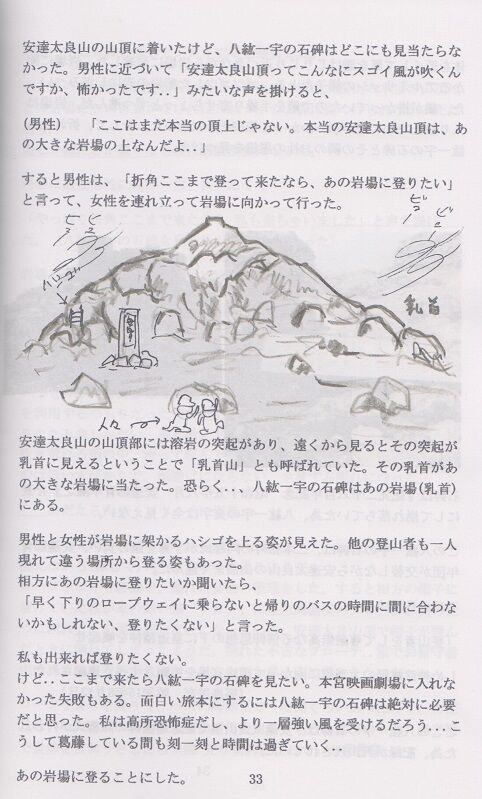 安達太良山の山頂に着いたけど、八紘一宇の石碑はどこにも見当たらな
かった。男性に近づいて「安達太良山頂ってこんなにスゴイ風が吹くん
ですか、怖かったです..」みたいな声を掛けると、
(男性)　「ここはまだ本当の頂上じゃない。本当の安達太良山頂は、あ
の大きな岩場の上なんだよ..」
すると男性は、「折角ここまで登って来たなら、あの岩場に登りたい」
と言って、女性を連れ立って岩場に向かって行った。
ビュー
ビュー
ハシゴ
乳首
人々
安達太良山の山頂部には溶岩の突起があり、遠くから見るとその突起が
乳首に見えるということで「乳首山」とも呼ばれていた。その乳首があ
の大きな岩場に当たった。恐らく...八紘一宇の石碑はあの岩場(乳首)
にある。
男性と女性が岩場に架かるハシゴを上る姿が見えた。他の登山者も一人
現れて違う場所から登る姿もあった。
相方にあの岩場に登りたいか聞いたら、
「早く下りのロープウェイに乗らないと帰りのバスの時間に間に合わな
いかもしれない、登りたくない」と言った。
私も出来れば登りたくない。
けど..ここまで来たら八紘一宇の石碑を見たい。本宮映画劇場に入れな
かった失敗もある。面白い旅本にするには八紘一宇の石碑は絶対に必要
だと思った。私は高所恐怖症だし、より一層強い風を受けるだろう...こ
うして葛藤している間も刻一刻と時間は過ぎていく..
あの岩場に登ることにした。
33